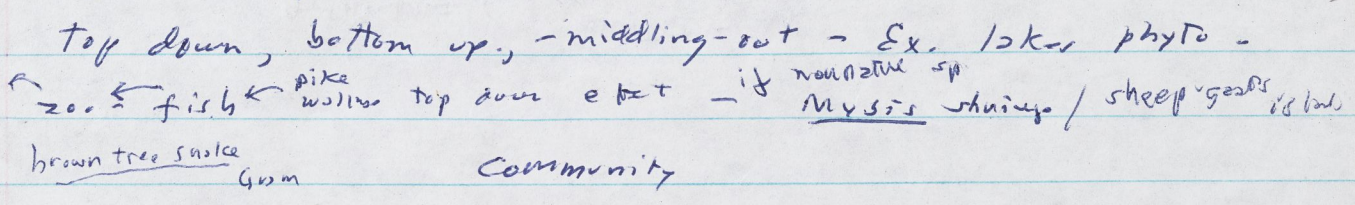 top down, bottom up, -middling-out - Ex. lakes phyto -
← zoo ← fish ← pike walleye top down effect - if nonnative sp Mysis shrimp / sheep-goats island
brown tree snake Guam Community